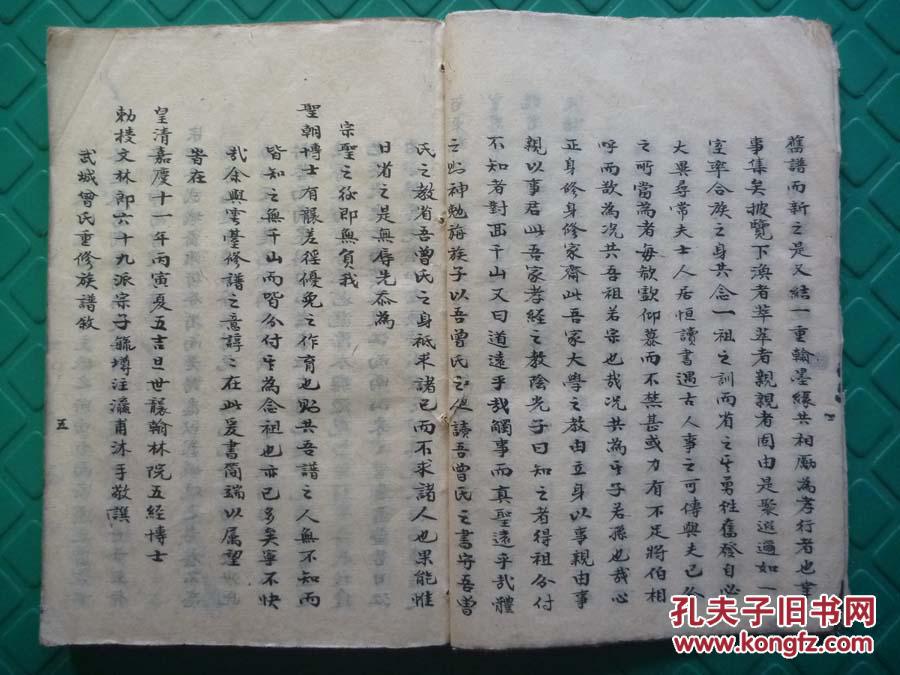 舊譜而新之是又結一重翰墨緣共相勵為孝行者也業
事集矣披覽下渙者萃萃者親親者周由是聚巡過如一
室率合族之身共念一祖之訓而省之其勇徃奮發自必
大異尋常夫士人居恒讀書遇古人事之可傳與夫已分
之所當為者每欲歔仰慕而不禁甚或力有不足將伯相
呼而歎為况共吾祖若宗也哉况共為其子若孫也哉心
正身修身修家齋此吾家大學之教由立身以事親由事
親以事君此吾家孝經之教陰光子曰知之者得祖分付
不知者對面千山又曰道遠乎哉觸事而真聖遠乎哉體
之即神勉旃族子以吾曾氏之人讀吾曾氏之書守吾曾
氏之教省吾曾氏之身祗求諸已而不求諸人也果能惟
日省之是無辱先忝為
宗聖之後即無負我
聖朝博士有襲差徭優免之作育也貽共吾譜之人無不知而
皆知之無千山而皆分付其為念祖也亦已多矣寧不快
哉余與雲臺修譜之意諄諄在此爰書简端以属望
皆在
皇清嘉慶十一年丙寅夏五吉旦世襲翰林院五經博士
勅授文林郎六十九派宗子毓墫注瀛甫沐手敬譔
武城曾氏重修族譜敘
五
孔夫子旧书网
www.kongfz.com